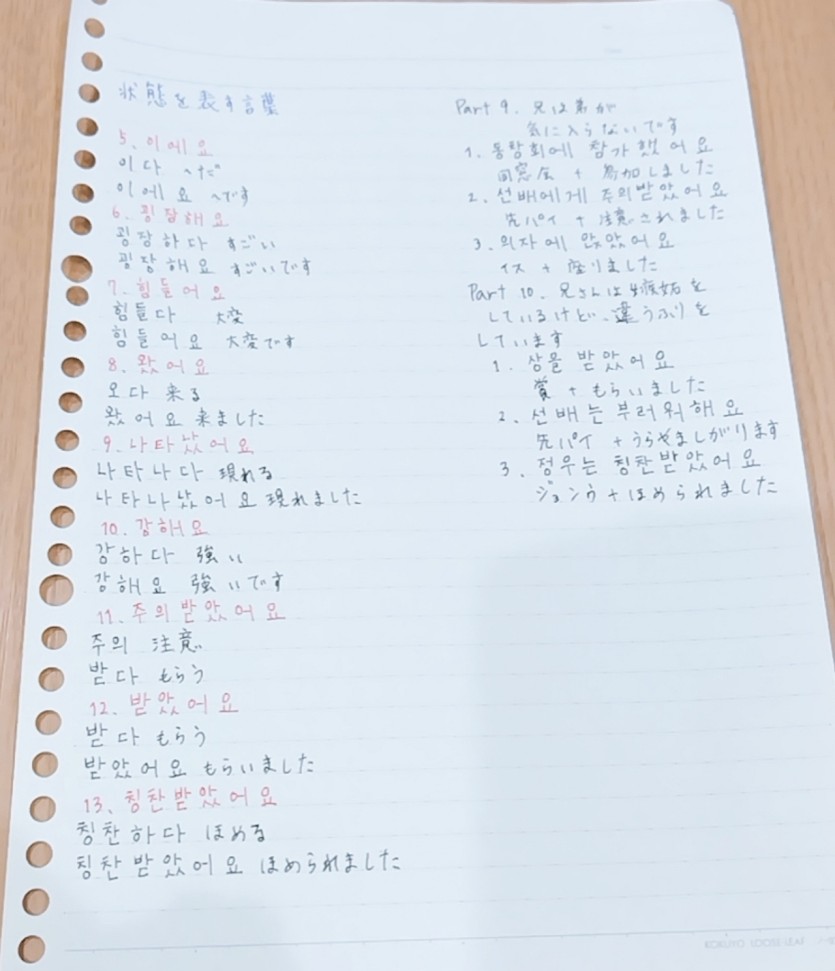 状態を表す言葉
5. 이에요
이다 〜だ
이에요 〜です
6. 굉장해요
굉장하다 すごい
굉장해요 すごいです
7. 힘들어요
힘들다 大変
힘들어요 大変です
8. 왔어요
오다 来る
왔어요 来ました
9. 나타났어요
나타나다 現れる
나타나났어요 現れました
10. 강해요
강하다 強い
강해요 強いです
11. 주의받았어요
주의 注意
받다 もらう
12. 받았어요
받다 もらう
받았어요 もらいました
13. 칭찬받았어요
칭찬하다 ほめる
칭찬받았어요 ほめられました
Part 9. 兄は弟が
気に入らないです
1. 동창회에 참가했어요
同窓会 + 参加しました
2. 선배에게 주의받았어요
先パイ + 注意されました
3. 의자에 앉았어요
イス + 座りました
Part 10. 兄さんは嫉妬を
しているけど、違うふりを
しています
1. 상을 받았어요
賞 + もらいました
2. 선배는 부러워해요
先パイ + うらやましがります
3. 정우는 칭찬받았어요
ジョンウ + ほめられました
KOKUYO LOOSE-LEAF